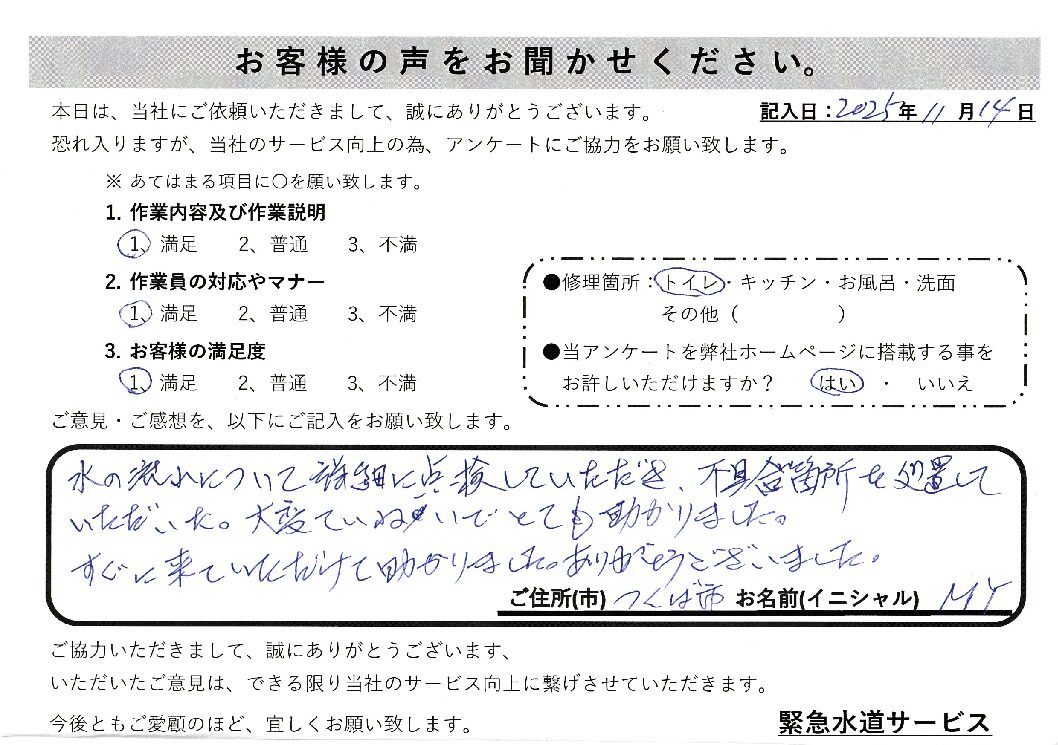 お客様の声をお聞かせください。
本日は、当社にご依頼いただきまして、誠にありがとうございます。
記入日：2025年11月14日
恐れ入りますが、当社のサービス向上の為、アンケートにご協力をお願い致します。
※ あてはまる項目に〇を願い致します。
1. 作業内容及び作業説明
1、満足 2、普通 3、不満
2. 作業員の対応やマナー
1、満足 2、普通 3、不満
3. お客様の満足度
1、満足 2、普通 3、不満
●修理箇所：トイレ・キッチン・お風呂・洗面
その他（ ）
●当アンケートを弊社ホームページに搭載する事を
お許しいただけますか？ はい ・ いいえ
ご意見・ご感想を、以下にご記入をお願い致します。
水の流れについて詳細に点検していただき、不具合箇所を処置して
いただいた。大変ていねいでとても助かりました。
すぐに来ていただけて助かりました。ありがとうございました。
ご住所(市) つくば市 お名前(イニシャル) MY
ご協力いただきまして、誠にありがとうございます、
いただいたご意見は、できる限り当社のサービス向上に繋げさせていただきます。
今後ともご愛顧のほど、宜しくお願い致します。
緊急水道サービス